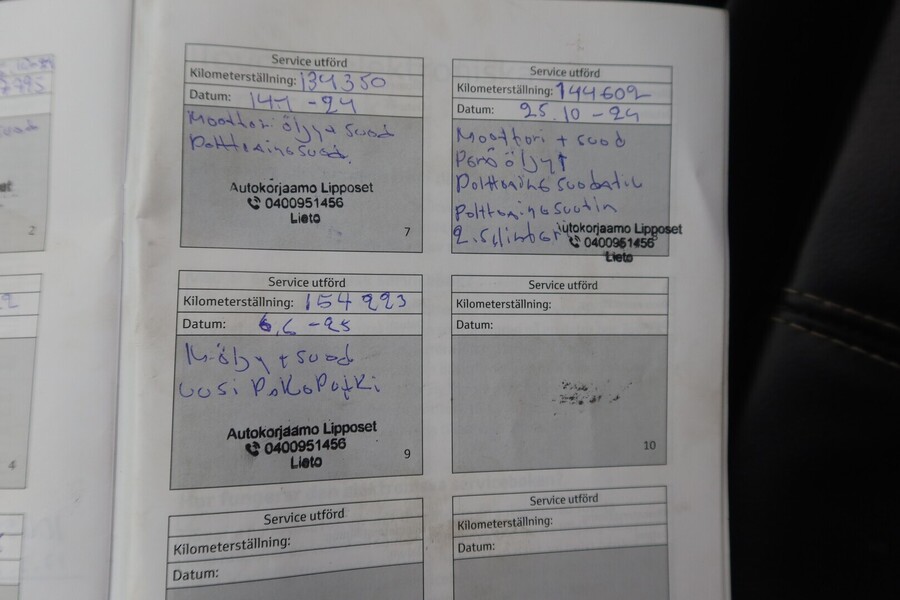 Service utförd
Kilometerställning: 134350
Datum: 141 - 24
Moottori öljy + suod
Polttoainesuod.
Autokorjaamo Lipposet
0400951456
Lieto
7
Service utförd
Kilometerställning: 144602
Datum: 25.10 - 24
Moottori + suod
Perä öljyt
Polttoaine suodatin
Polttoainesuutin
2. Sylinteri
utokorjaamo Lipposet
0400951456
Lieto
Service utförd
Kilometerställning: 154223
Datum: 6.6 - 25
M-öljy + suod
uusi PakoPutki
Autokorjaamo Lipposet
0400951456
Lieto
9
Service utförd
Kilometerställning:
Datum:
10
Service utförd
Kilometerställning:
Datum:
Service utförd
Kilometerställning:
Datum:
2
4